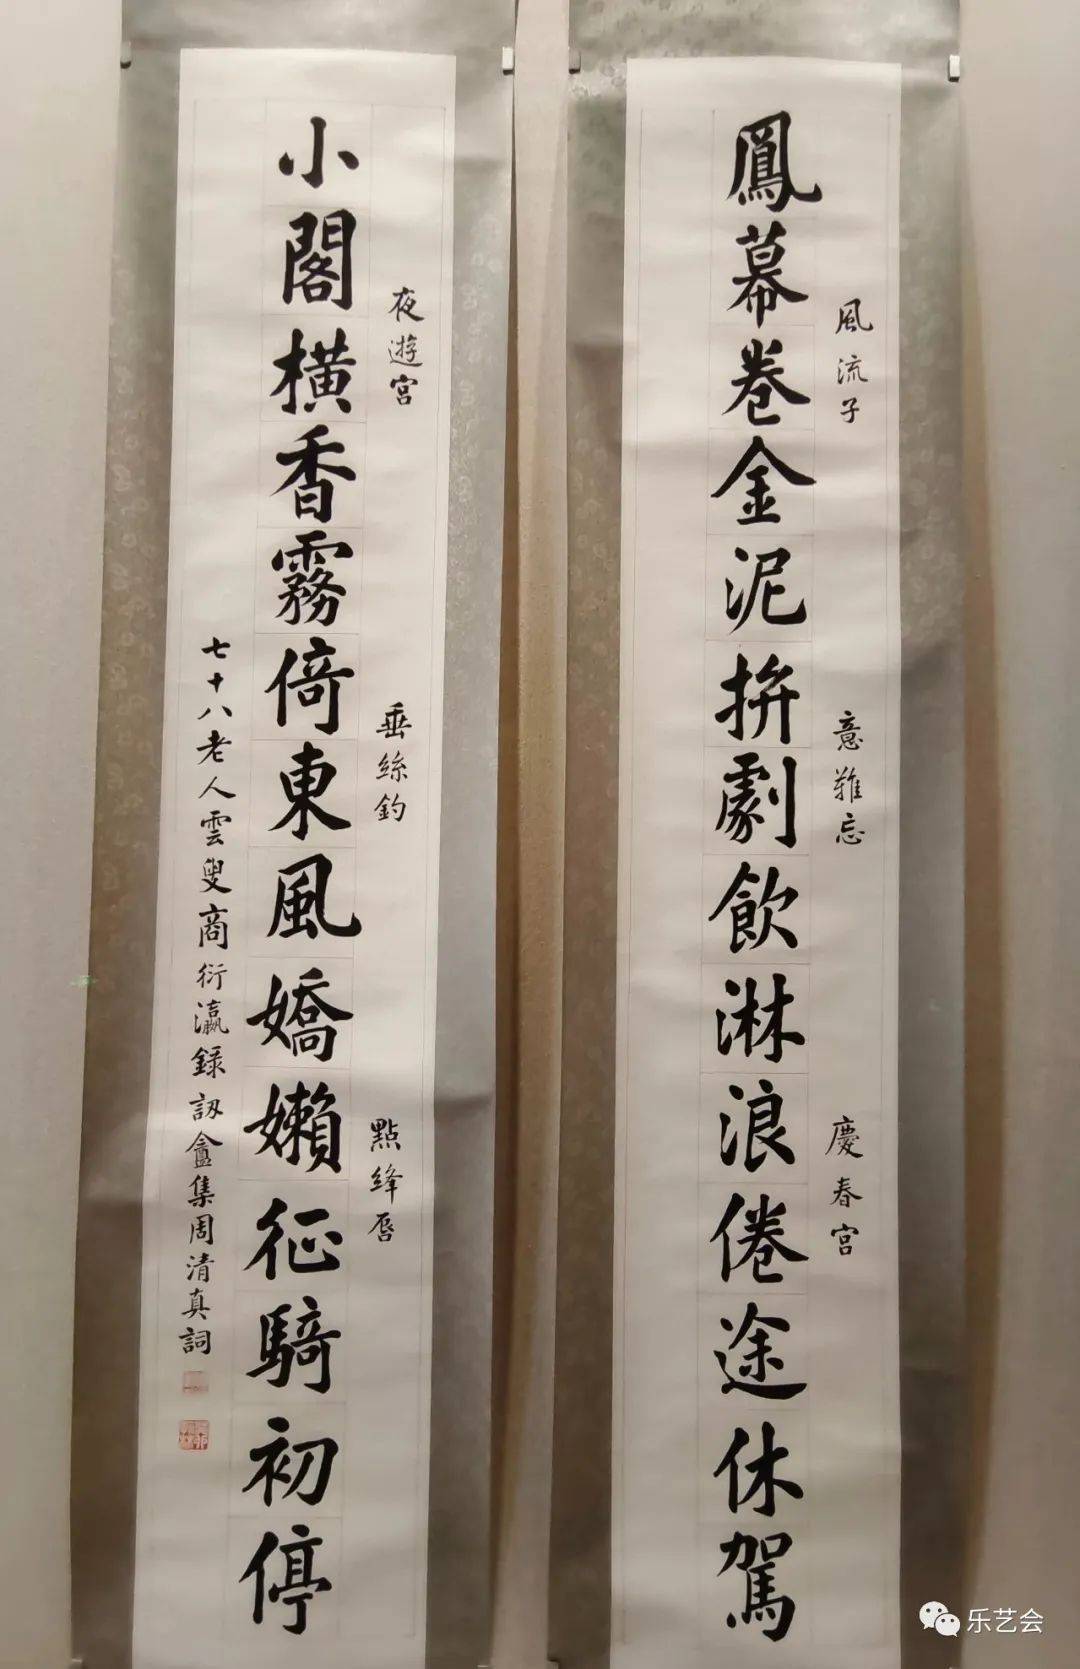 鳳幕卷金泥拚劇飲淋浪倦途休駕
風流子
意難忘
慶春宮
小閣橫香霧倚東風嬌嬾征騎初停
夜遊宮
垂絲釣
點絳唇
七十八老人雲叟商衍瀛錄訒盦集周清真詞
乐艺会